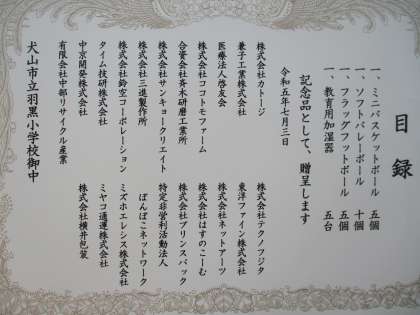 目録
一、ミニバスケットボール 五個
一、ソフトバレーボール 十個
一、フラッグフットボール 五個
一、教育用加湿器 五台
記念品として、贈呈します
令和五年七月三日
株式会社カトージ 株式会社テクノフジタ
兼子工業株式会社 東洋ファイン株式会社
医療法人啓友会 株式会社ネットアーツ
株式会社ココトモファーム 株式会社はすのこーむ
合資会社斉木研磨工業所 株式会社プリンスバック
株式会社サンキョークリエイト 特定非営利活動法人
株式会社三進製作所 ぽんぽこネットワーク
株式会社鈴空コーポレーション ミズホエレシス株式会社
タイム技研株式会社 ミヤコ通運株式会社
中京開発株式会社 株式会社横井包装
有限会社中部リサイクル産業
犬山市立羽黒小学校御中